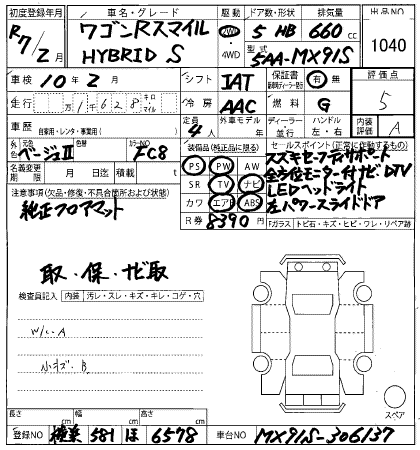 初度登録年月 車名・グレード 駆動 ドア数・形状 排気量 出品NO
R7/2月 ワゴンRスマイル HYBRID S 2WD・4WD 5 HB 660cc 1040
型式 5AA-MX91S
車検 10年2月 シフト IAT 保証書 有 無 評価点
走行 万1千628 キロ・マイル 冷房 AAC 燃料 G 5
車歴 自家用・レンタ・事業用( ) 定員 4人 外車モデル 年 ディーラー・並行 ハンドル 左・右 内装評価 A
外色 ベージュII 色替 カラーNO FC8 装備品(純正品に限る) セールスポイント(正常に作動するもの)
名義変更期限 月 日 積載 t PS PW AW スズキセーフティサポート
SR TV ナビ 全方位モニター付ナビDTV
注意事項(欠品・修復・不具合箇所および状態) カワ エアB ABS LEDヘッドライト
純正フロアマット R券 8390円 左パワースライドドア
Fガラス トビ石・キズ・ヒビ・ワレ・リペア跡
取・保・ナビ取
検査員記入 内装 汚レ・スレ・キズ・キレ・コゲ・穴
W/L A
小キズ B
スペア
長さ cm 幅 cm 高さ cm
登録NO 581 ほ 6578 車台NO MX91S-306137